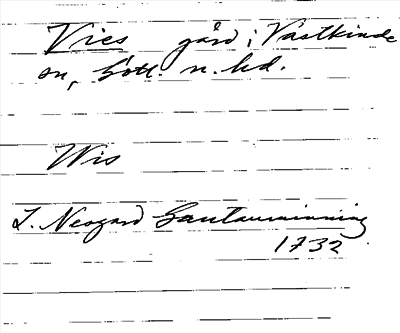 Vies gård i Västkinde
sn, Gotl. n. hd.
Wis
L. Neogard Gautauminning
1732